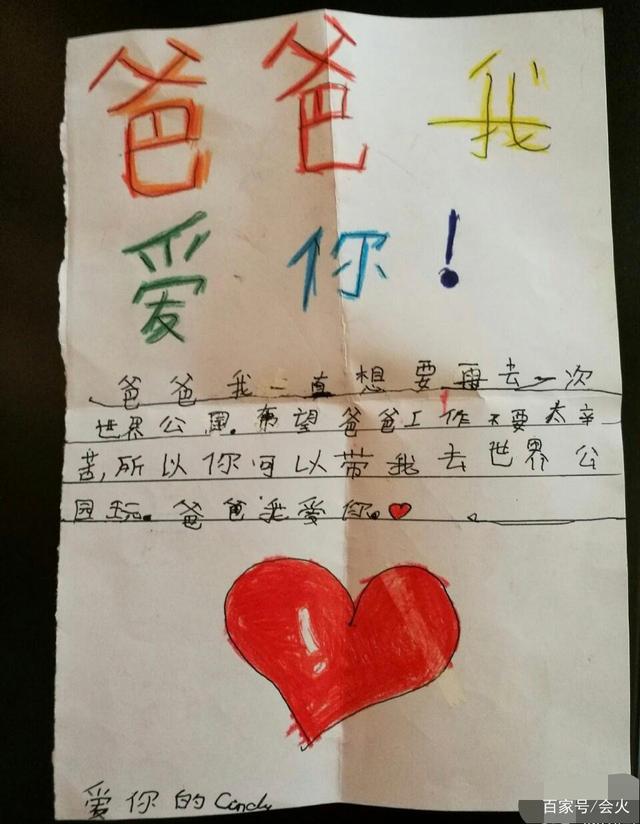 爸爸我
爱你！
爸爸我一直想要再去一次
世界公园。希望爸爸工作不要太辛
苦,所以你可以带我去世界公
园玩。爸爸我爱你。
爱你的Candy
百家号/会火